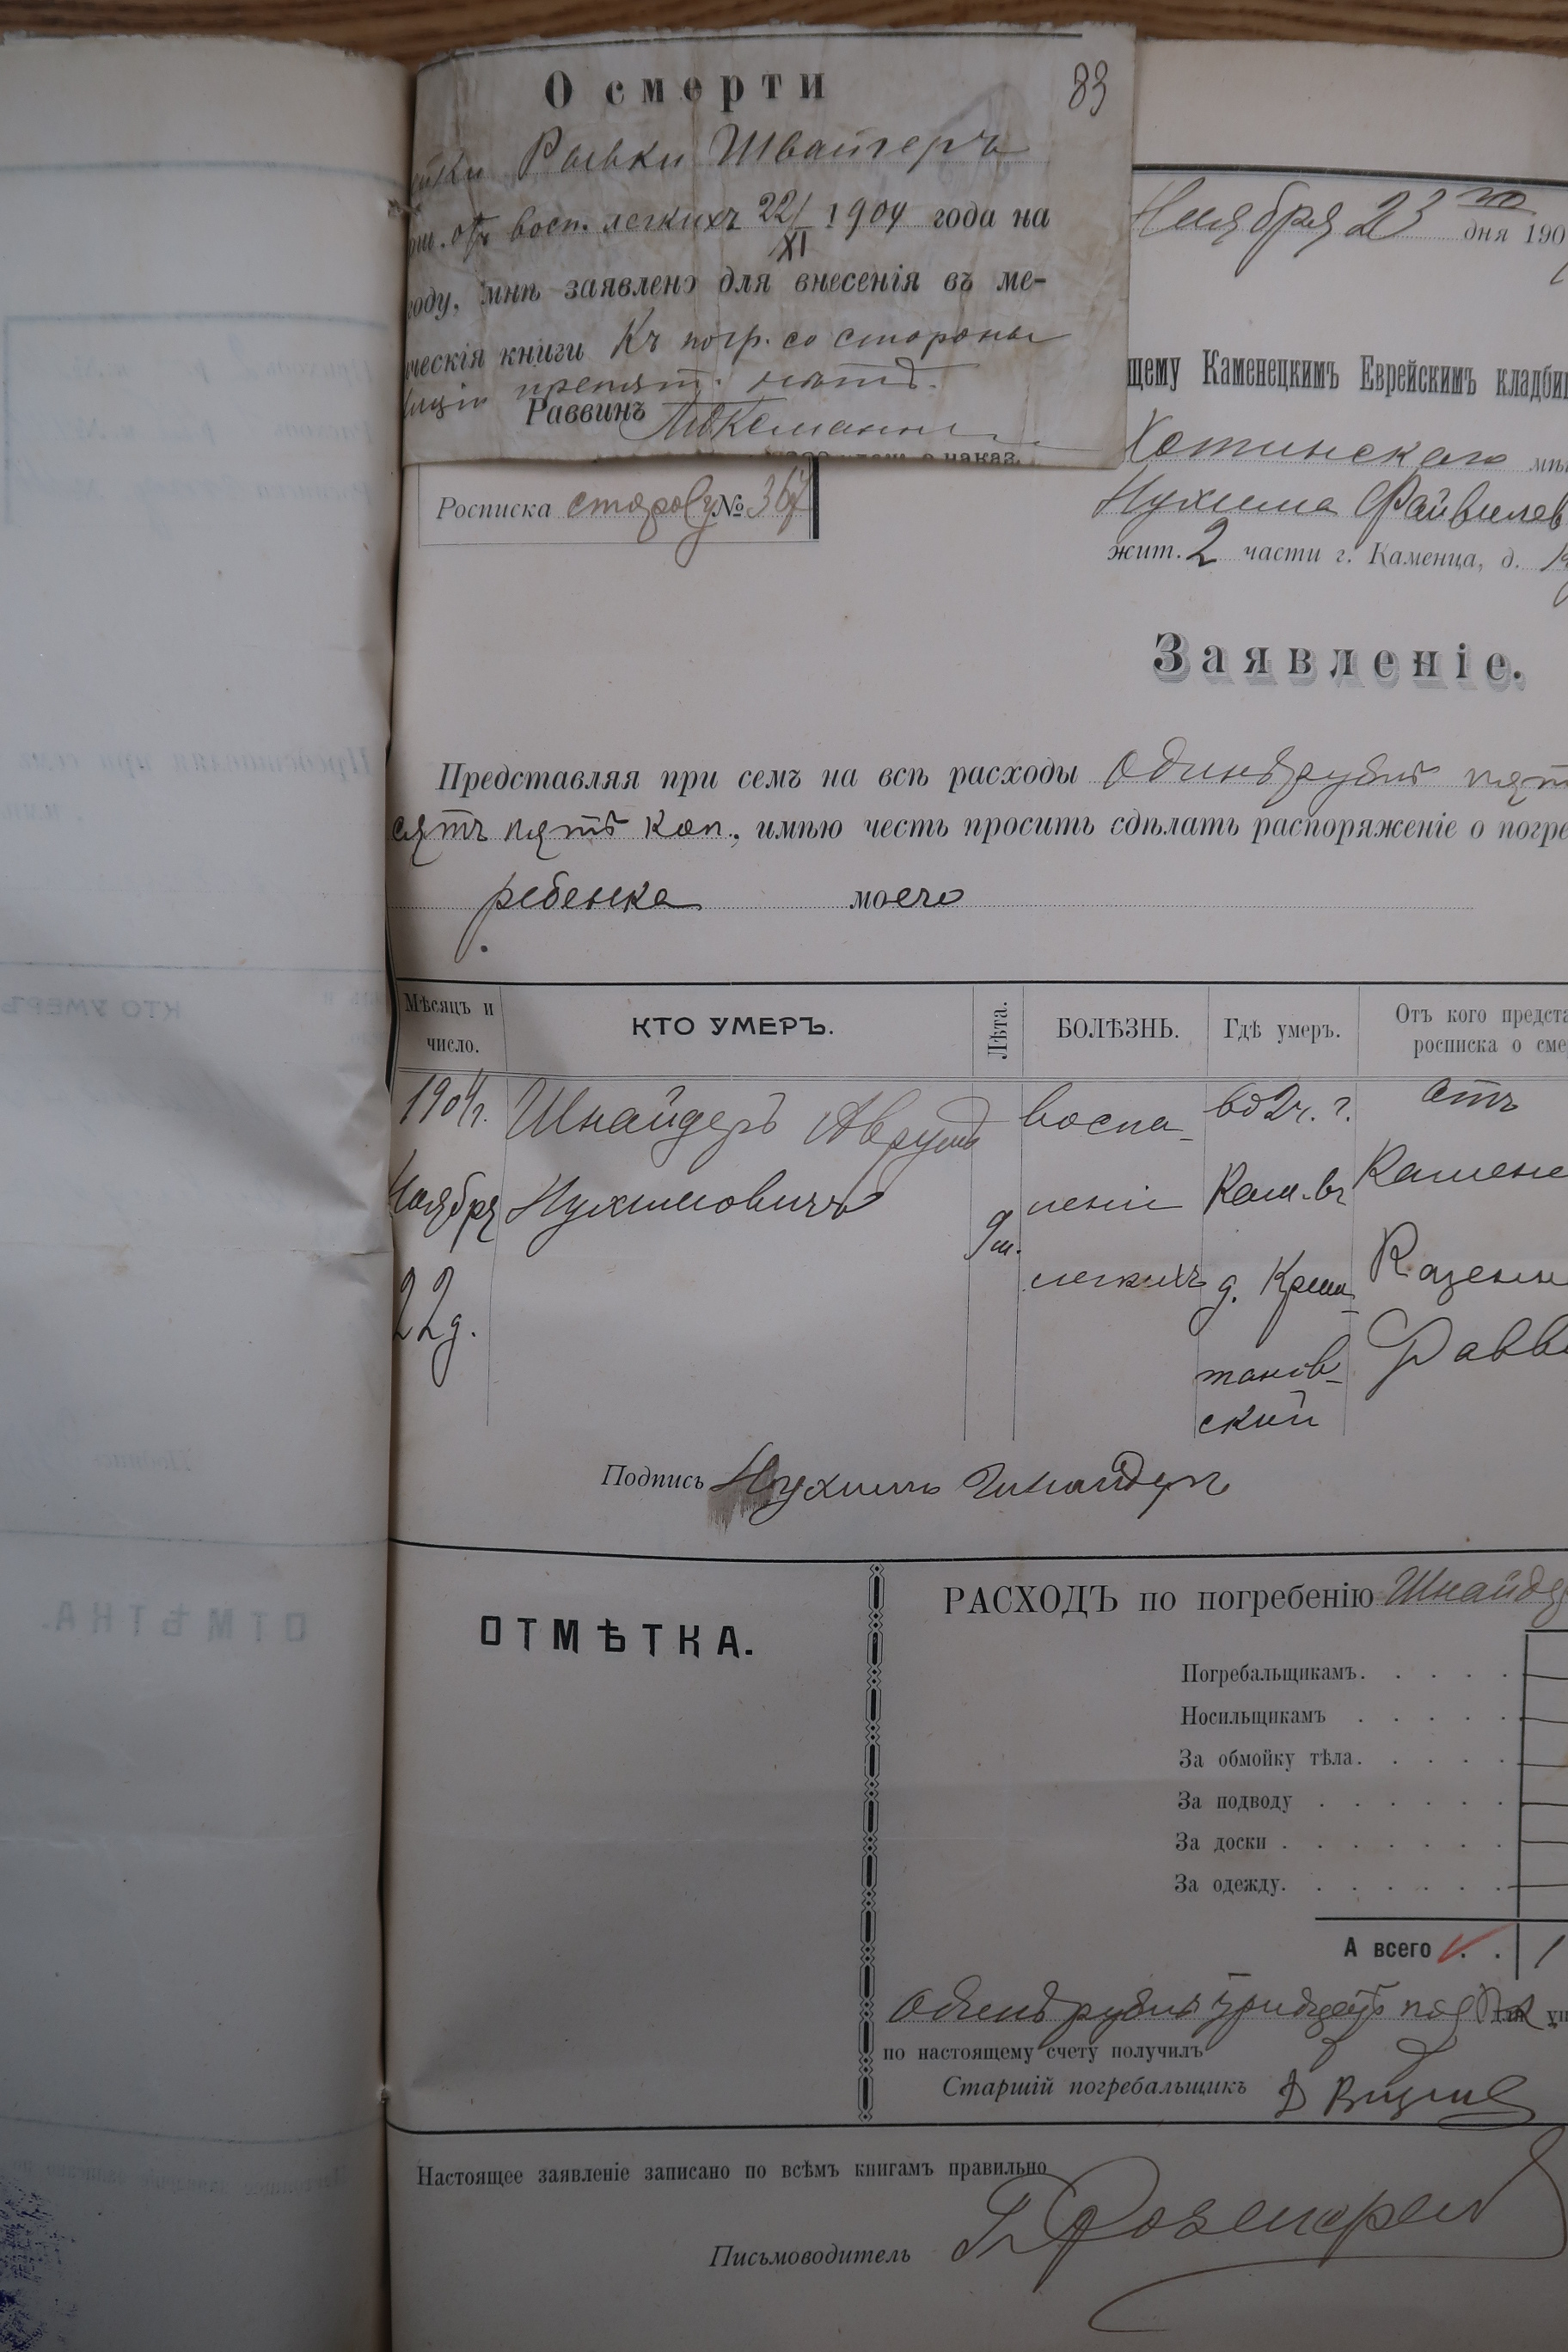 О смерти
83
Рывки Швайгеръ
отъ восп. легкихъ 22/XI 1904 года на
году, мнѣ заявлено для внесенія въ ме-
ческія книги Къ погр. со стороны
препят. нѣтъ.
Раввинъ
Ноября 23 го дня 190
щему Каменецкимъ Еврейскимъ кладби
Хотинскаго мѣ
Росписка №367
Нухима Файвилев
жит. 2 части г. Каменца, д.
Заявленіе.
Представляя при семъ на всѣ расходы Одинъ рубль пят
сятъ пять коп., имѣю честь просить сдѣлать распоряженіе о погре
ребенка моего
Мѣсяцъ и число. КТО УМЕРЪ. Лѣта. БОЛѢЗНЬ. Гдѣ умеръ. Отъ кого предста росписка о сме
1904г. Шнайдеръ Аврумъ воспа- во 2ч. г. отъ
Ноября Нухимовичъ 9м. леніи Кам. въ Камене
22д. легкихъ д. Крем- Казенн
танов- Равви
ский
Подпись Нухимъ Шнайдеръ
ОТМѢТКА.
РАСХОДЪ по погребенію Шнайде
Погребальщикамъ.
Носильщикамъ
За обмойку тѣла.
За подводу
За доски
За одежду.
А всего 1
Одинъ рубль тридцать
по настоящему счету получилъ
Старшій погребальщикъ
Настоящее заявленіе записано по всѣмъ книгамъ правильно
Письмоводитель